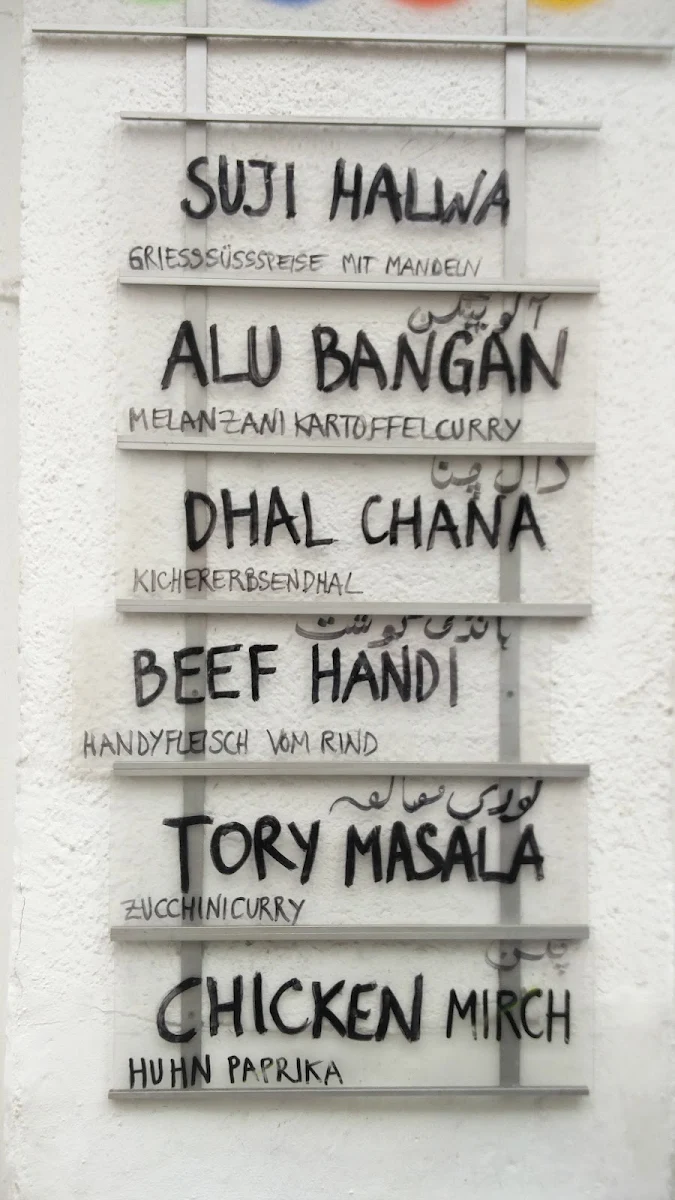 SUJI HALWA
GRIESSSÜSSSPEISE MIT MANDELN
آلو بینگن
ALU BANGAN
MELANZANI KARTOFFELCURRY
دال چنا
DHAL CHANA
KICHERERBSENDHAL
ہانڈی گوشت
BEEF HANDI
HANDYFLEISCH VOM RIND
توری
TORY MASALA
ZUCCHINICURRY
چکن
CHICKEN MIRCH
HUHN PAPRIKA